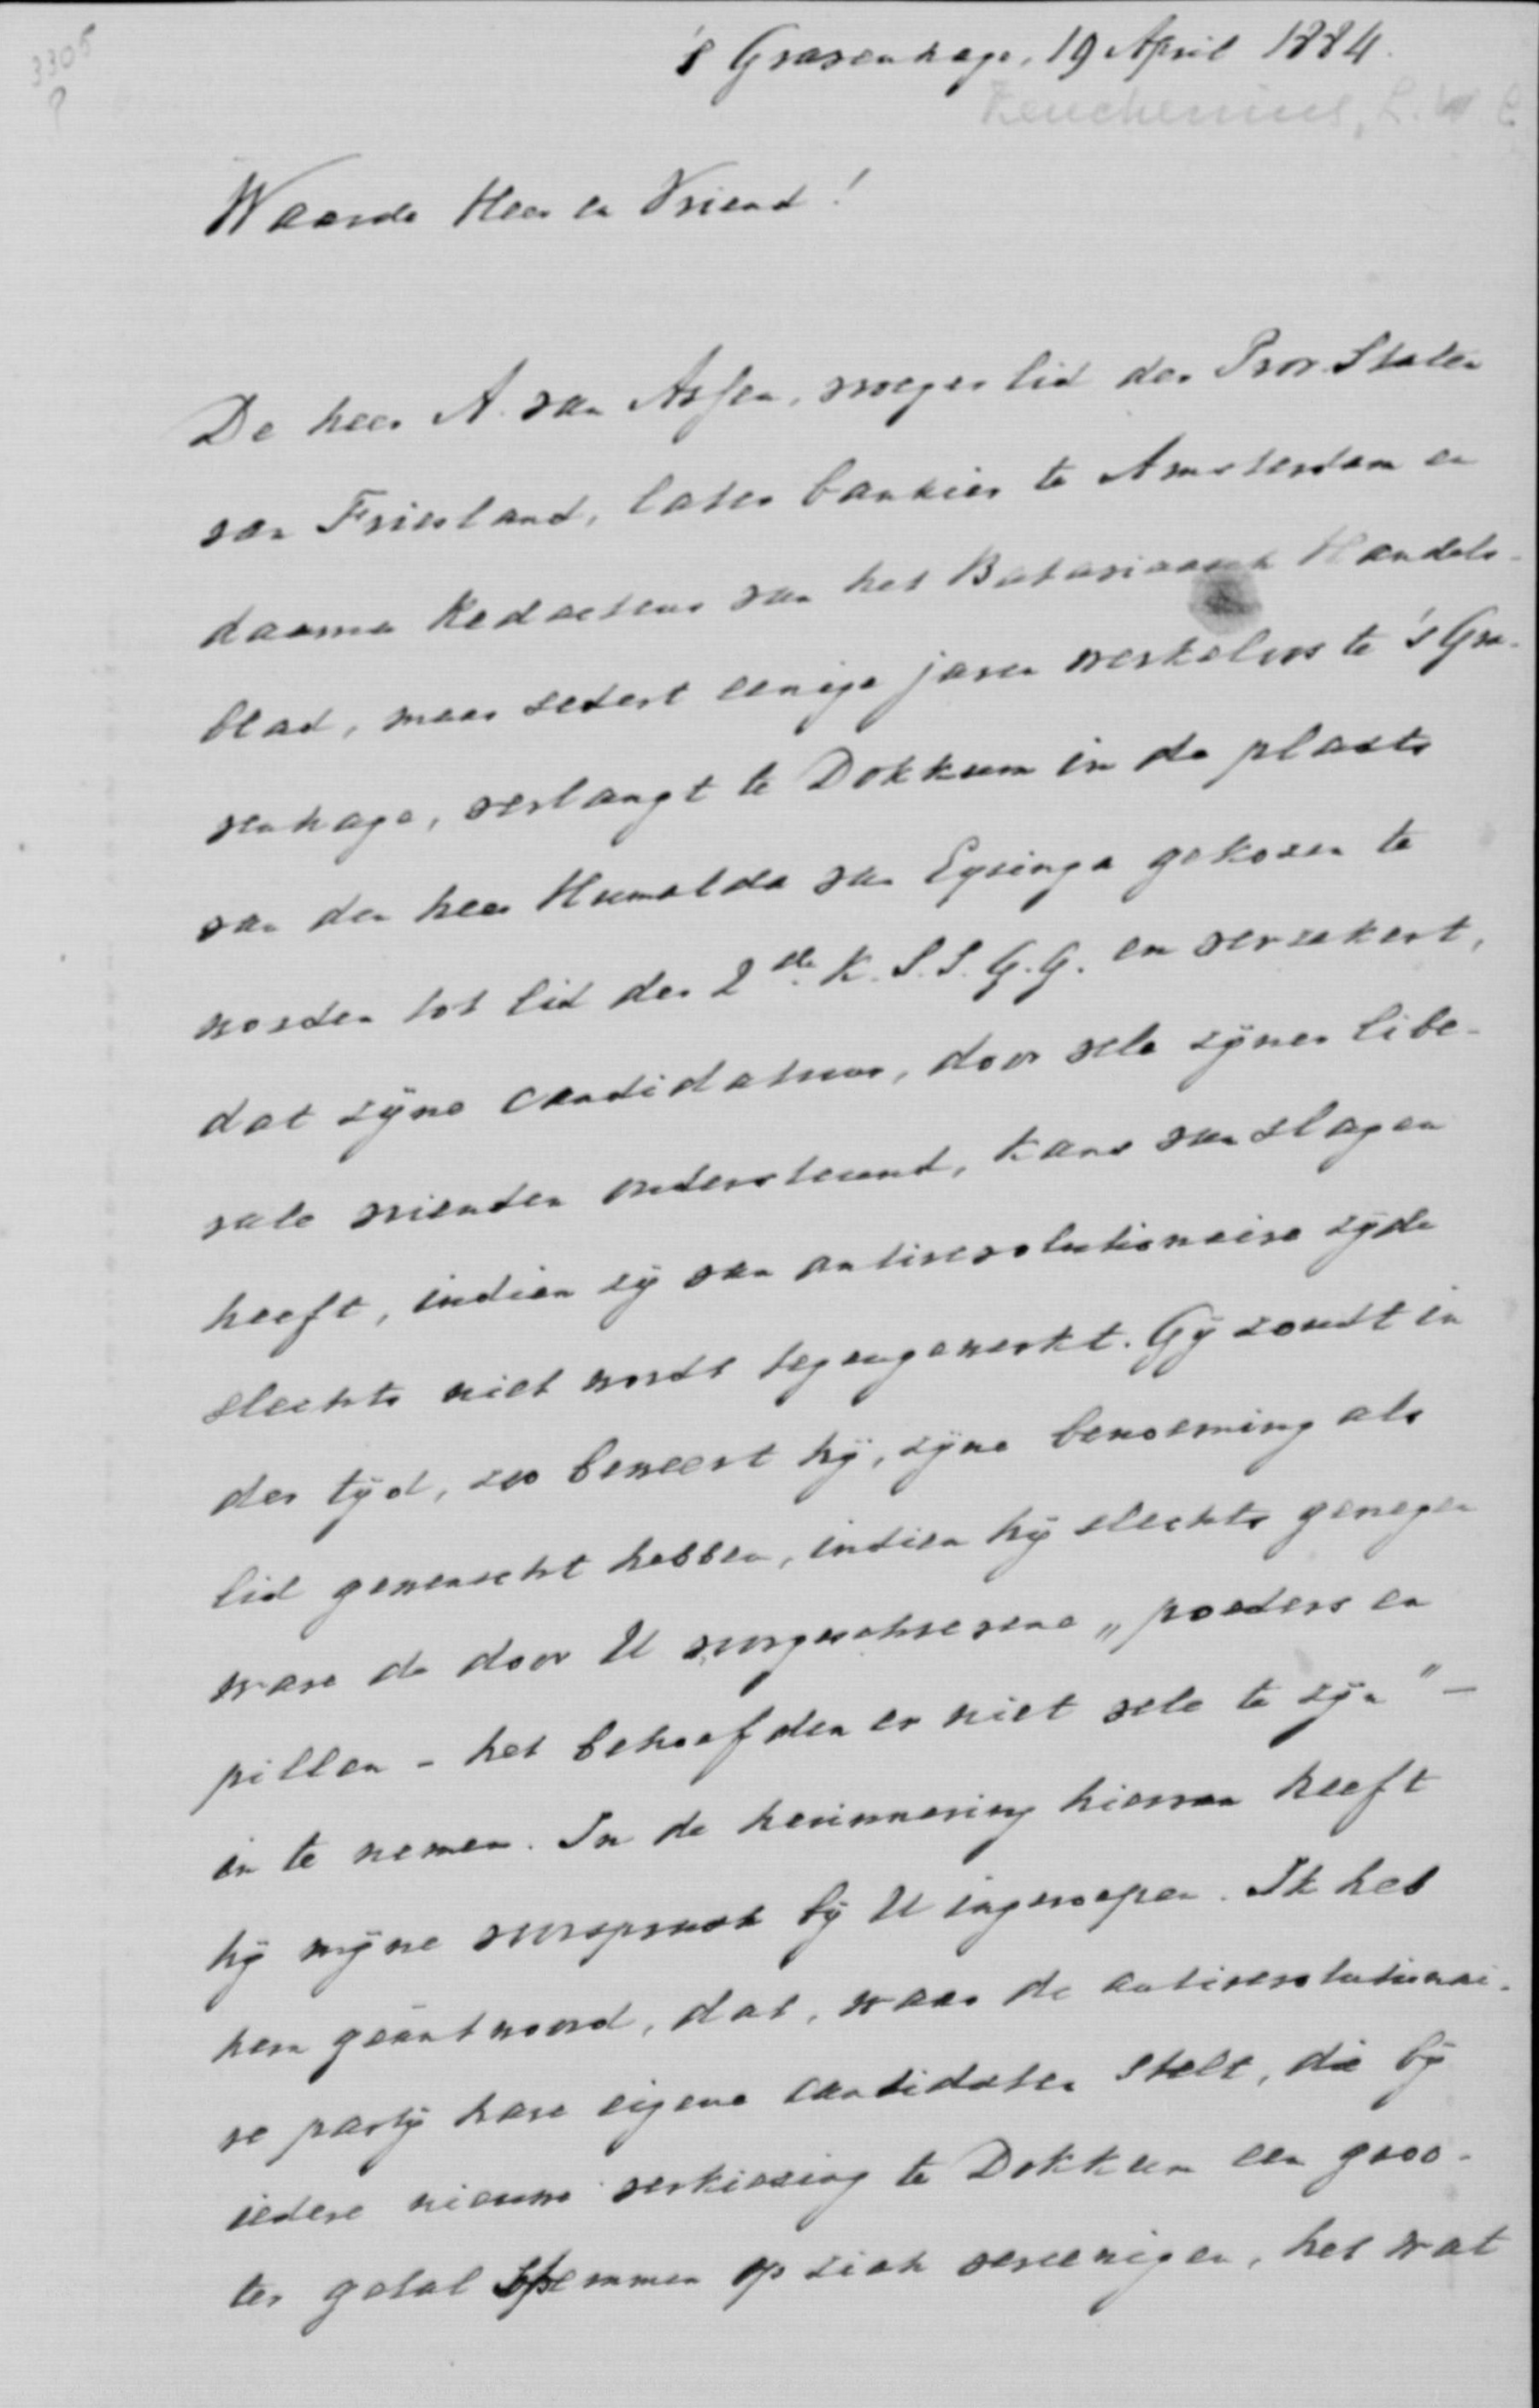 3308
's Gravenhage, 19 April 1884.
Keuchenius, L.W.C.
Waarde Heer en Vriend!
De heer A. van Assen, vroeger lid der Prov. Staten
van Friesland, later bankier te Amsterdam en
daarna Redacteur van het Bataviaasch Handels-
blad, maar sedert eenige jaren werkeloos te 's Gra-
venhage, verlangt te Dokkum in de plaats
van den heer Humalda van Eysinga gekozen te
worden tot lid der 2de K. S.S. G.G. en verzekert,
dat zijne candidatuur, door vele zijner libe-
rale vrienden ondersteund, kans van slagen
heeft, indien zij van antirevolutionaire zijde
slechts niet wordt tegengewerkt. Gij zoudt in
der tijd, zoo beweert hij, zijne benoeming als
lid gewenscht hebben, indien hij slechts genegen
ware de door U voorgeschrevene „poeders en
pillen - het behoefden er niet vele te zijn" -
in te nemen. In de herinnering hiervan heeft
hij mijne voorspraak bij U ingeroepen. Ik heb
hem geäntwoord, dat, waar de antirevolutionai-
re partij hare eigene candidaten stelt, die bij
iedere nieuwe verkiezing te Dokkum een groo-
ter getal stemmen op zich vereenigen, het wat